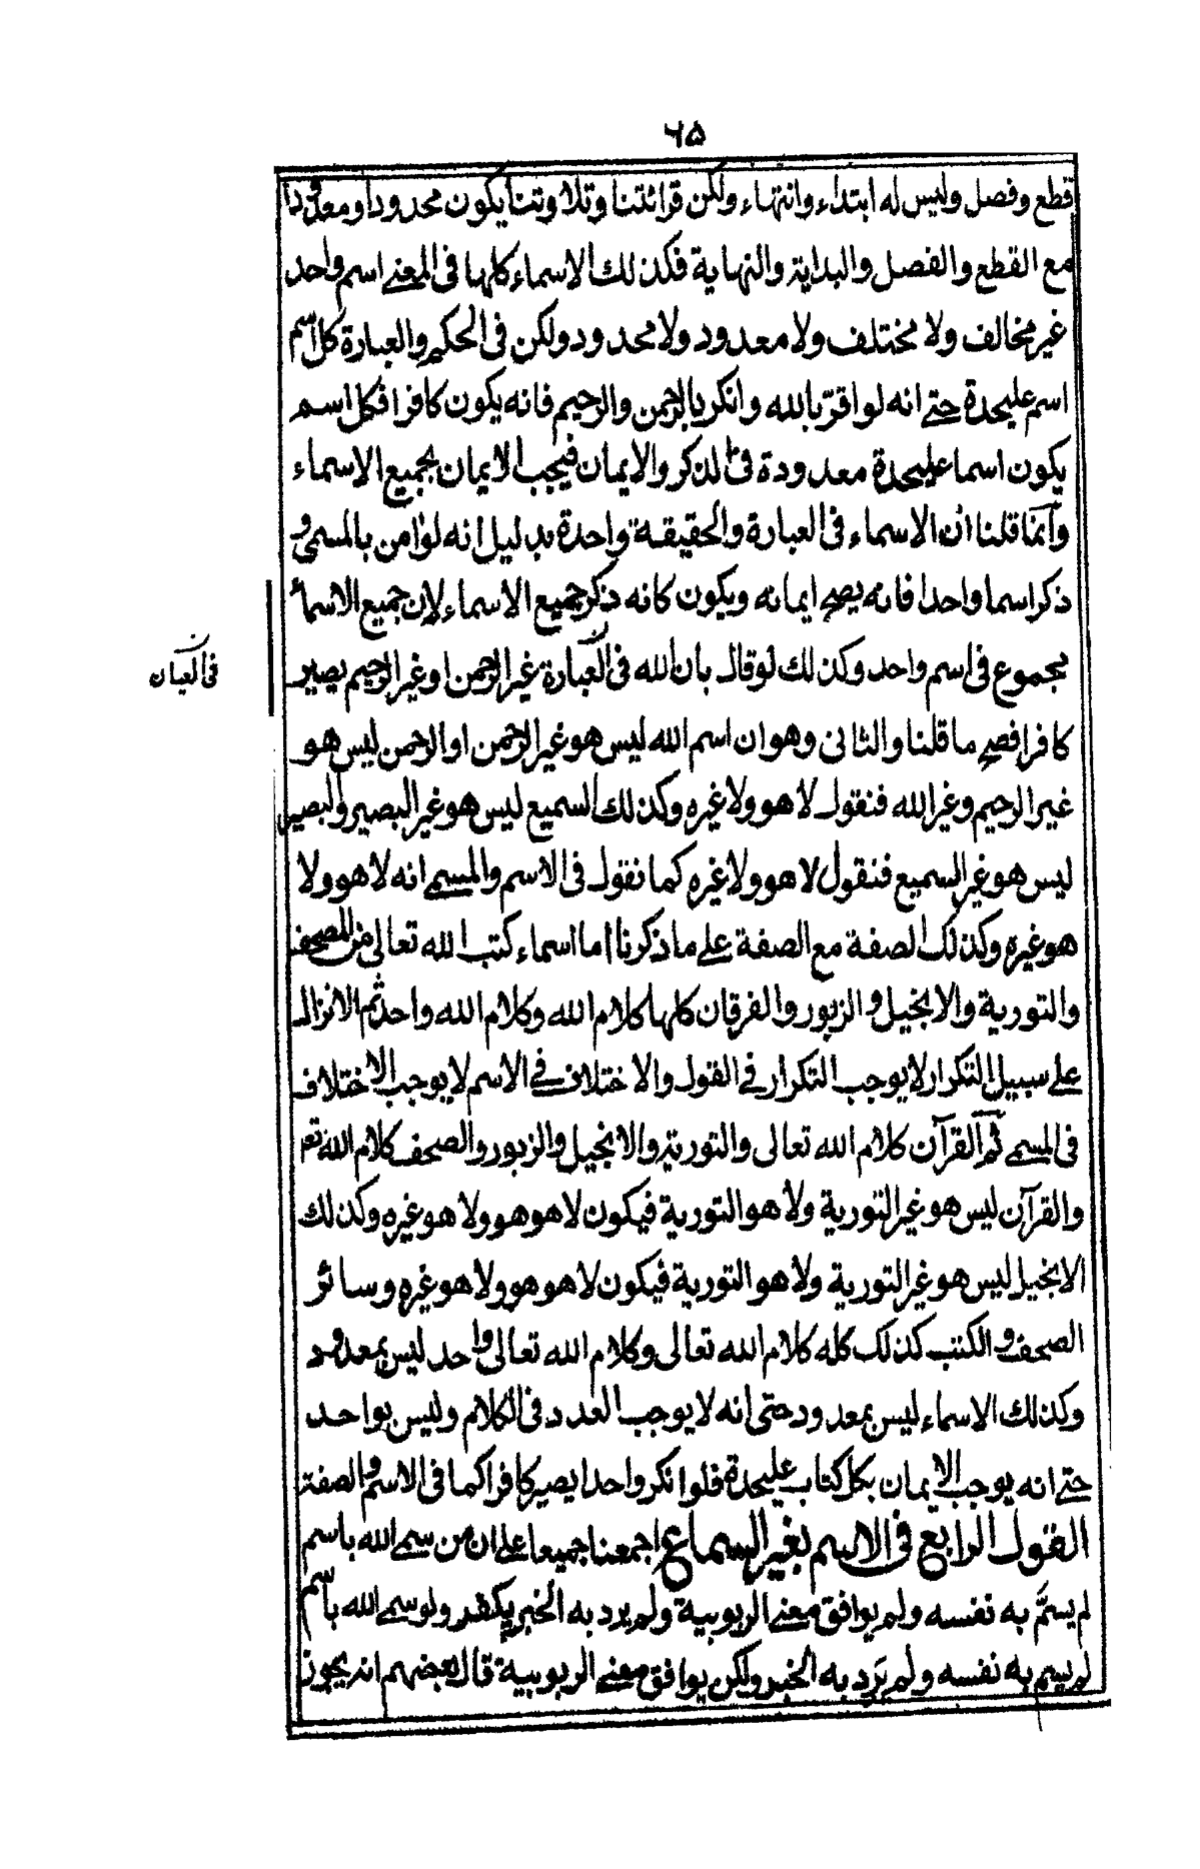 ٦٥
قطع وفصل وليس له ابتداء وانتهاء ولكن قرائتنا وتلاوتنا يكون محدودا ومعدودا
مع القطع والفصل والبداية والنهاية فكذلك الاسماء كلها فى المعنے اسم واحد
غير مخالف ولا مختلف ولا معدود ولا محدود ولكن فى الحكم والعبارة كل اسم
اسم عليحدة حتے انه لو اقرّ بالله وانكر بالرحمن والرحيم فانه يكون كافرا فكل اسم
يكون اسما عليحدة معدودة فى الذكر والايمان فيجب الايمان بجميع الاسماء
وانما قلنا ان الاسماء فى العبارة والحقيقة واحدة بدليل انه لو امن بالمسمى و
ذكر اسما واحدا فانه يصح ايمانه ويكون كانه ذكر جميع الاسماء لان جميع الاسماء
مجموع فى اسم واحد وكذلك لو قال بان الله فى العبارة غير الرحمن او غير الرحيم يصير
فى العيان
كافرا فصح ما قلنا والثانى وهو ان اسم الله ليس هو غير الرحمن او الرحمن ليس هو
غير الرحيم وغير الله فنقول لا هو ولا غيره وكذلك السميع ليس هو غير البصير والبصير
ليس هو غير السميع فنقول لا هو ولا غيره كما نقول فى الاسم والمسمے انه لا هو ولا
هو غيره وكذلك الصفة مع الصفة علے ما ذكرنا اما اسماء كتب الله تعالى من المصحف
والتورية والانجيل والزبور والفرقان كلها كلام الله وكلام الله واحد ثم الانزال
علے سبيل التكرار لا يوجب التكرار فے القول والاختلاف فے الاسم لا يوجب الاختلاف
فى المسمے ثم القرآن كلام الله تعالى والتورية والانجيل والزبور والصحف كلام الله تعا
والقرآن ليس هو غير التورية ولا هو التورية فيكون لا هو هو ولا هو غيره وكذلك
الانجيل ليس هو غير التورية ولا هو التورية فيكون لا هو هو ولا هو غيره وسائر
الصحف والكتب كذلك كله كلام الله تعالى وكلام الله تعالى واحد ليس بمعدود
وكذلك الاسماء ليس بمعدود حتى انه لا يوجب العدد فى الكلام وليس بواحد
حتے انه يوجب الايمان بكل كتاب عليحدة فلو انكر واحدا يصير كافرا كما فى الاسم والصفة
القول الرابع فى الاسم بغير السماع اجمعنا جميعا علے ان من سمے الله باسم
لم يسمّ به نفسه ولم يوافق معنے الربوبية ولم يرد به الخبر يكفر ولو سمے الله باسم
لم يسم به نفسه ولم يَرد به الخبر ولكن يوافق معنے الربوبية قال بعضهم انه يجوز